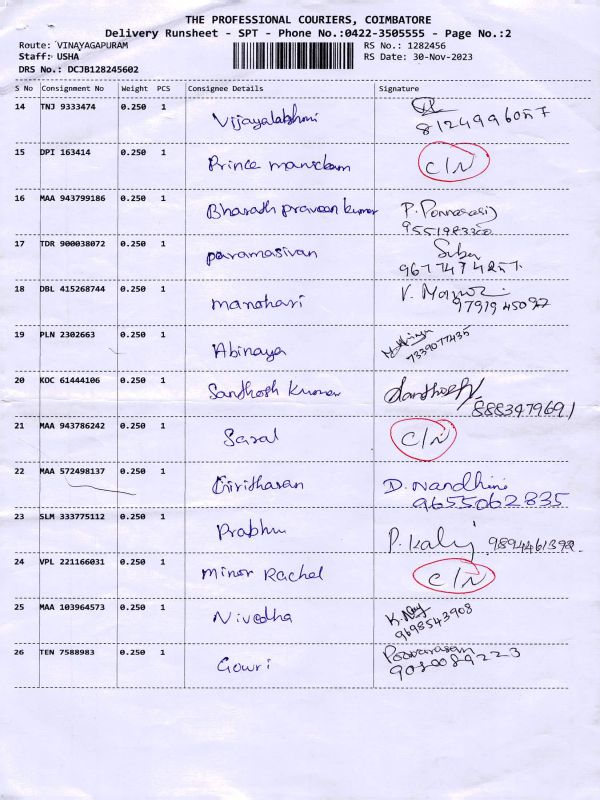 THE PROFESSIONAL COURIERS, COIMBATORE
Delivery Runsheet - SPT - Phone No.:0422-3505555 - Page No.:2
Route: VINAYAGAPURAM RS No.: 1282456
Staff: USHA RS Date: 30-Nov-2023
DRS No.: DCJB128245602
S No Consignment No Weight PCS Consignee Details Signature
14 TNJ 9333474 0.250 1 Vijayalakshmi
15 DPI 163414 0.250 1 Prince manickam C/N
16 MAA 943799186 0.250 1 Bharath praveen kumar P. Ponnarasi
17 TDR 900038072 0.250 1 paramasivan
18 DBL 415268744 0.250 1 manohari V.
19 PLN 2302663 0.250 1 Abinaya
7339077435
20 KOC 61444106 0.250 1 Sandhosh kumar
8883479691
21 MAA 943786242 0.250 1 Saral C/N
22 MAA 572498137 0.250 1 Giritharan D. Nandhini
9655062835
23 SLM 333775112 0.250 1 Prabhu P. Kalij 9894461392
24 VPL 221166031 0.250 1 Minor Rachel C/N
25 MAA 103964573 0.250 1 Nivedha
9698543908
26 TEN 7588983 0.250 1 Gowri Poovarasan
9080089223